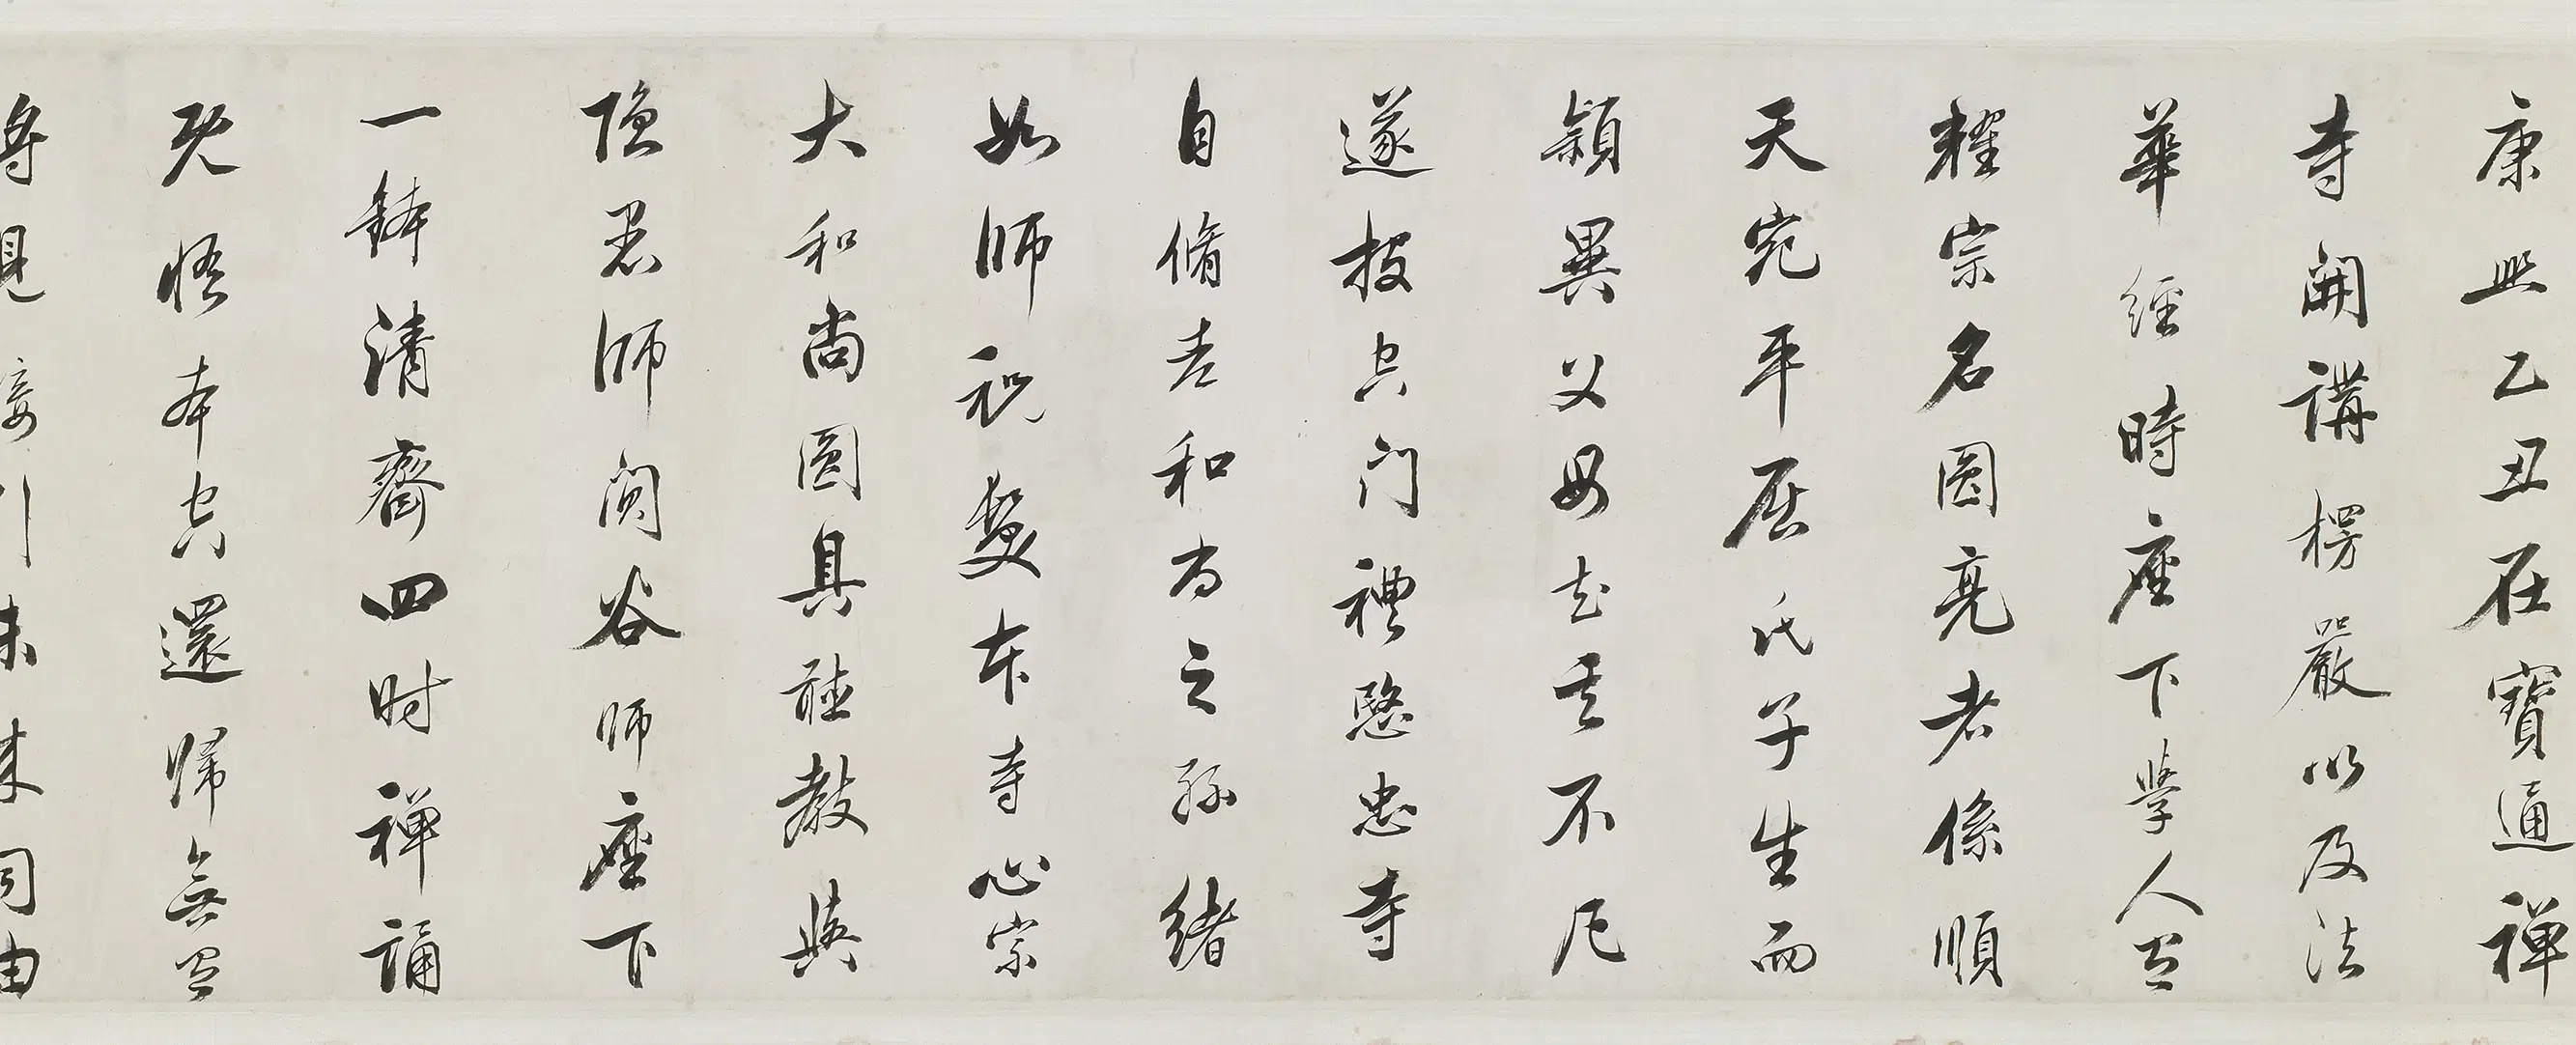 康熙乙丑在寶通禪
寺開講楞嚴以及法
華經時座下學人有
耀宗名圓亮者係順
天宛平屈氏子生而
穎異父母知其不凡
遂投空門禮愍忠寺
自脩老和尚之孫緒
如師祝髮本寺心宗
大和尚圓具聽教與
隱師谷師座下
一鉢清齋四時禪誦
既悟本空還歸無有
將見接引未來同由